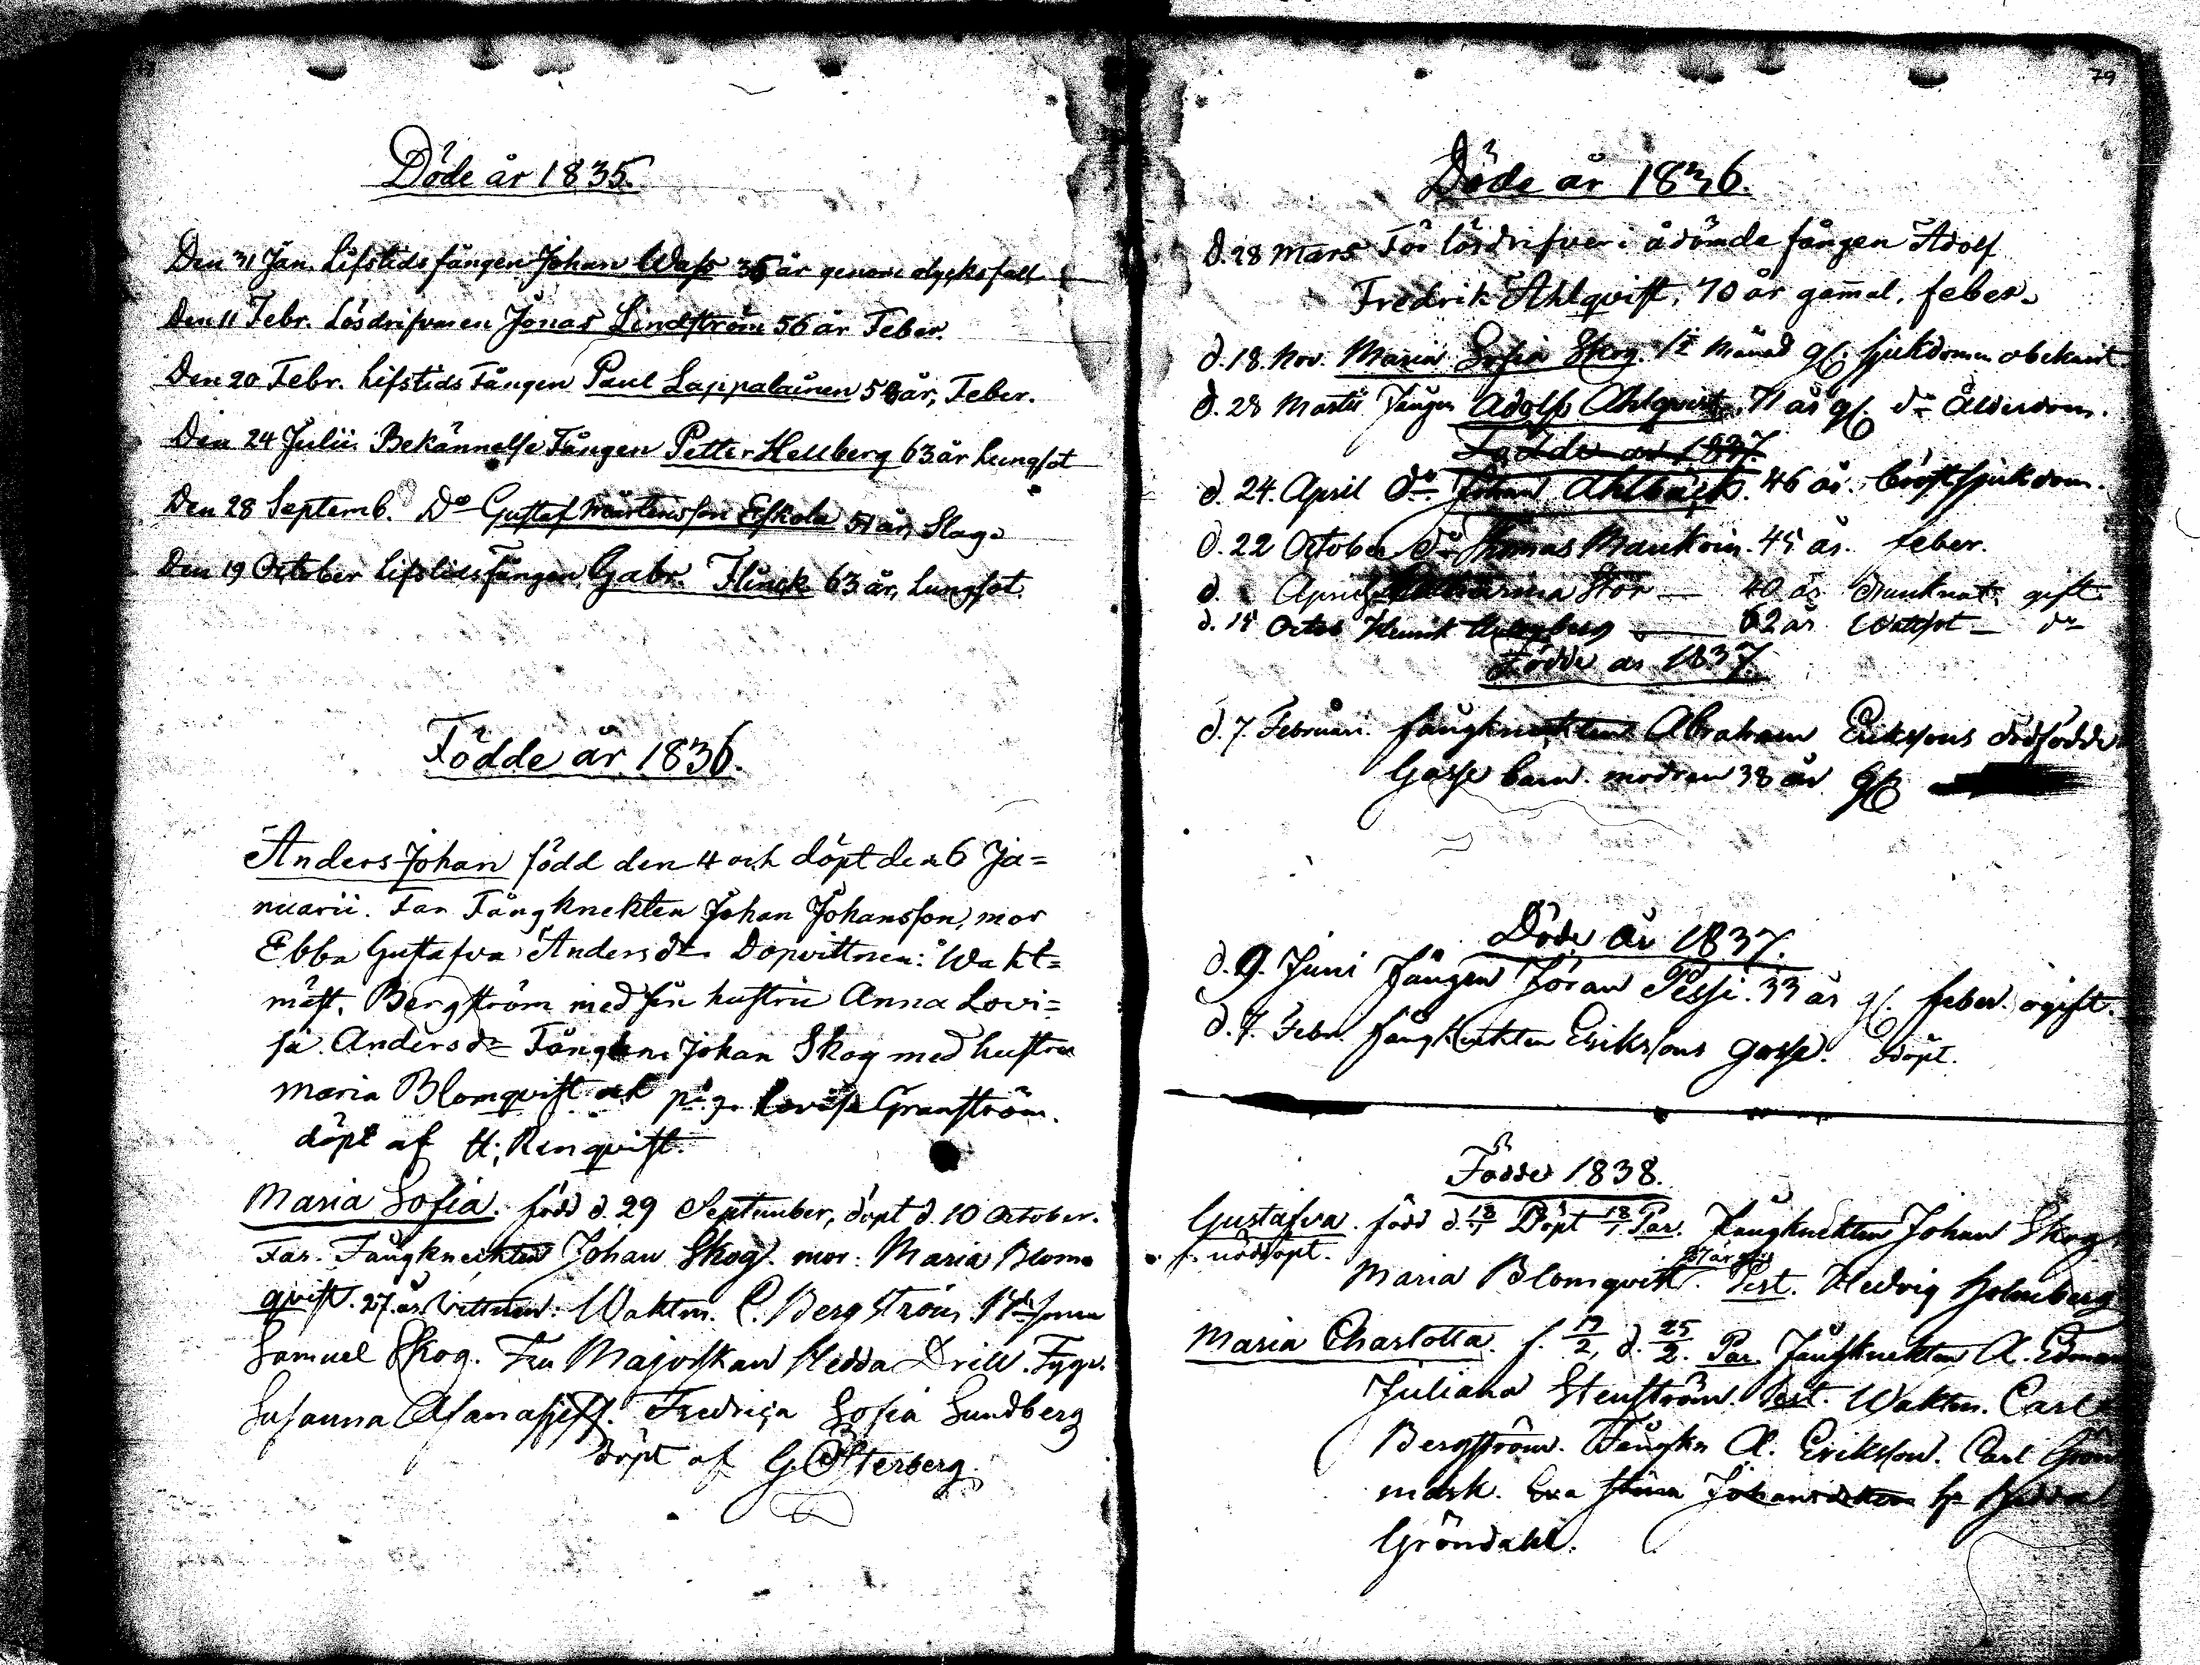 Döde år 1835.
Den 31 Jan. Lifstidsfången Johan Wass 36 år genom olyksfall
Den 11 Febr. Lösdrifvaren Jonas Lindström 56 år Feber.
Den 20 Febr. Lifstids Fången Paul Lappalainen 58 år, Feber.
Den 24 Julii Bekännelse Fången Petter Hellberg 63 år Lungsot
Den 28 Septemb. Do Gustaf Mårtensson Eskola 51 år, Slag.
Den 19 October Lifstidsfången Gabr. Flinck 63 år, Lungsot.
Födde år 1836.
Anders Johan född den 4 och döpt den 6 Ja=
nuarii. Far Fångknekten Johan Johansson, mor
Ebba Gustafva Andersdr Dopvittnen: Wakt=
mäst. Bergström med sin hustru Anna Lovi=
sa Andersdr Fångkn. Johan Skog med hustru
Maria Blomqvist och pig. Lovisa Granström.
döpt af H. Renqvist.
Maria Sofia. född d. 29 September, döpt d. 10 October.
Far. Fångknekten Johan Skog. mor: Maria Blom
qvist. 27. år. Vittnen: Waktm. C. Bergström,
Samuel Skog. Fru Majorskan Hedda Drill.
Susanna Afanasjeff. Fredrica Sofia Sundberg
döpt af G. Österberg.
79
Döde år 1836.
d. 28 Mars För lösdrifveri ådömde fången Adolf
Fredrik Ahlqvist, 70 år gamal, feber.
d. 18. Nov. Maria Sofia Skog. 1½ Månad gl. sjukdomen obekant.
d. 28 Martii Fången Adolf Ahlqvist, 71 år gl. do Ålderdom.
Födde år 1837.
d. 24. April do Johan Ahlbäck. 46 år. bröstsjukdom.
d. 22 October do Thomas Maukoin. 45 år. feber.
d. April Catharina Stor — 40 år drunknat. gift.
d. 15 Octob Henrik — 62 år — do
Födde år 1837.
d. 7. Februari. fångknekten Abraham Erikssons dödfödde
Gosse barn. modren 38 år gl.
Döde år 1837.
d. 9. Juni Fången Jöran Pessi. 33 år gl. feber. ogift.
d. 7. Febr. fångknekten Erikssons gosse. odöpt.
Födde 1838.
Gustafva. född d. 18/1 Döpt 18/1 Par. Fångknekten Johan Skog
nöddöpt.
27 år gl.
Maria Blomqvist. Test. Hedvig Holmberg
Maria Charlotta. f. 19/2, d. 25/2. Par. Fångknekten A. Edman
Juliana Stenström. Test. Waktm. Carl
Bergström. Fångkn A. Eriksson. Carl Grön
mark. Eva Stina Johansdotter h. Hedda
Gröndahl.